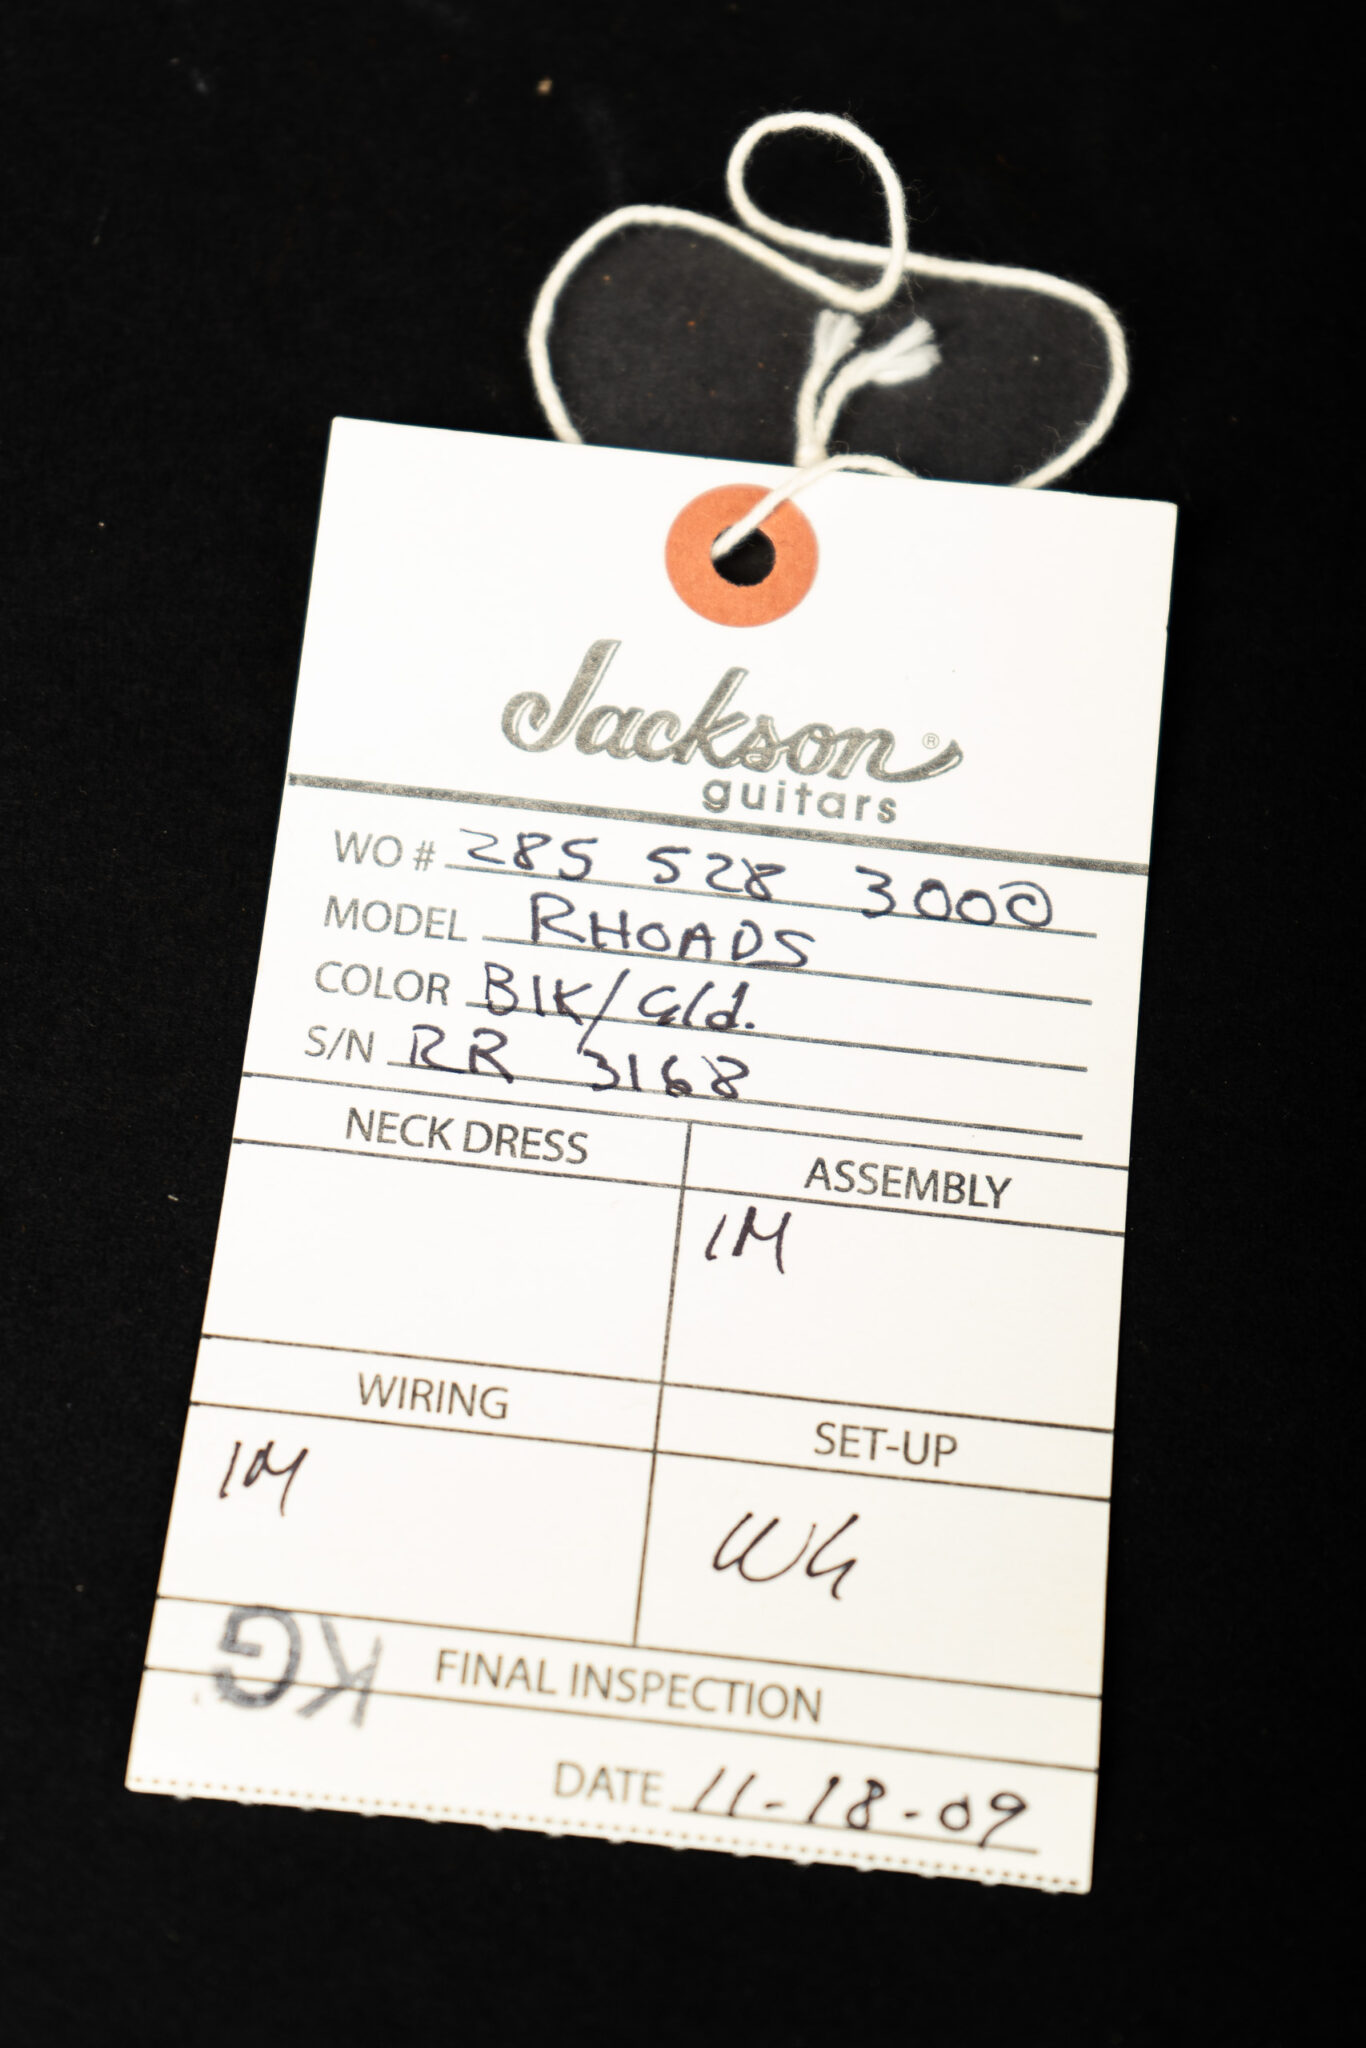 Jackson®
guitars
WO # 285 528 3000
MODEL RHOADS
COLOR Blk/Gld.
S/N RR 3168
NECK DRESS
ASSEMBLY
IM
WIRING
SET-UP
IM
WG
KG
FINAL INSPECTION
DATE 11-18-09